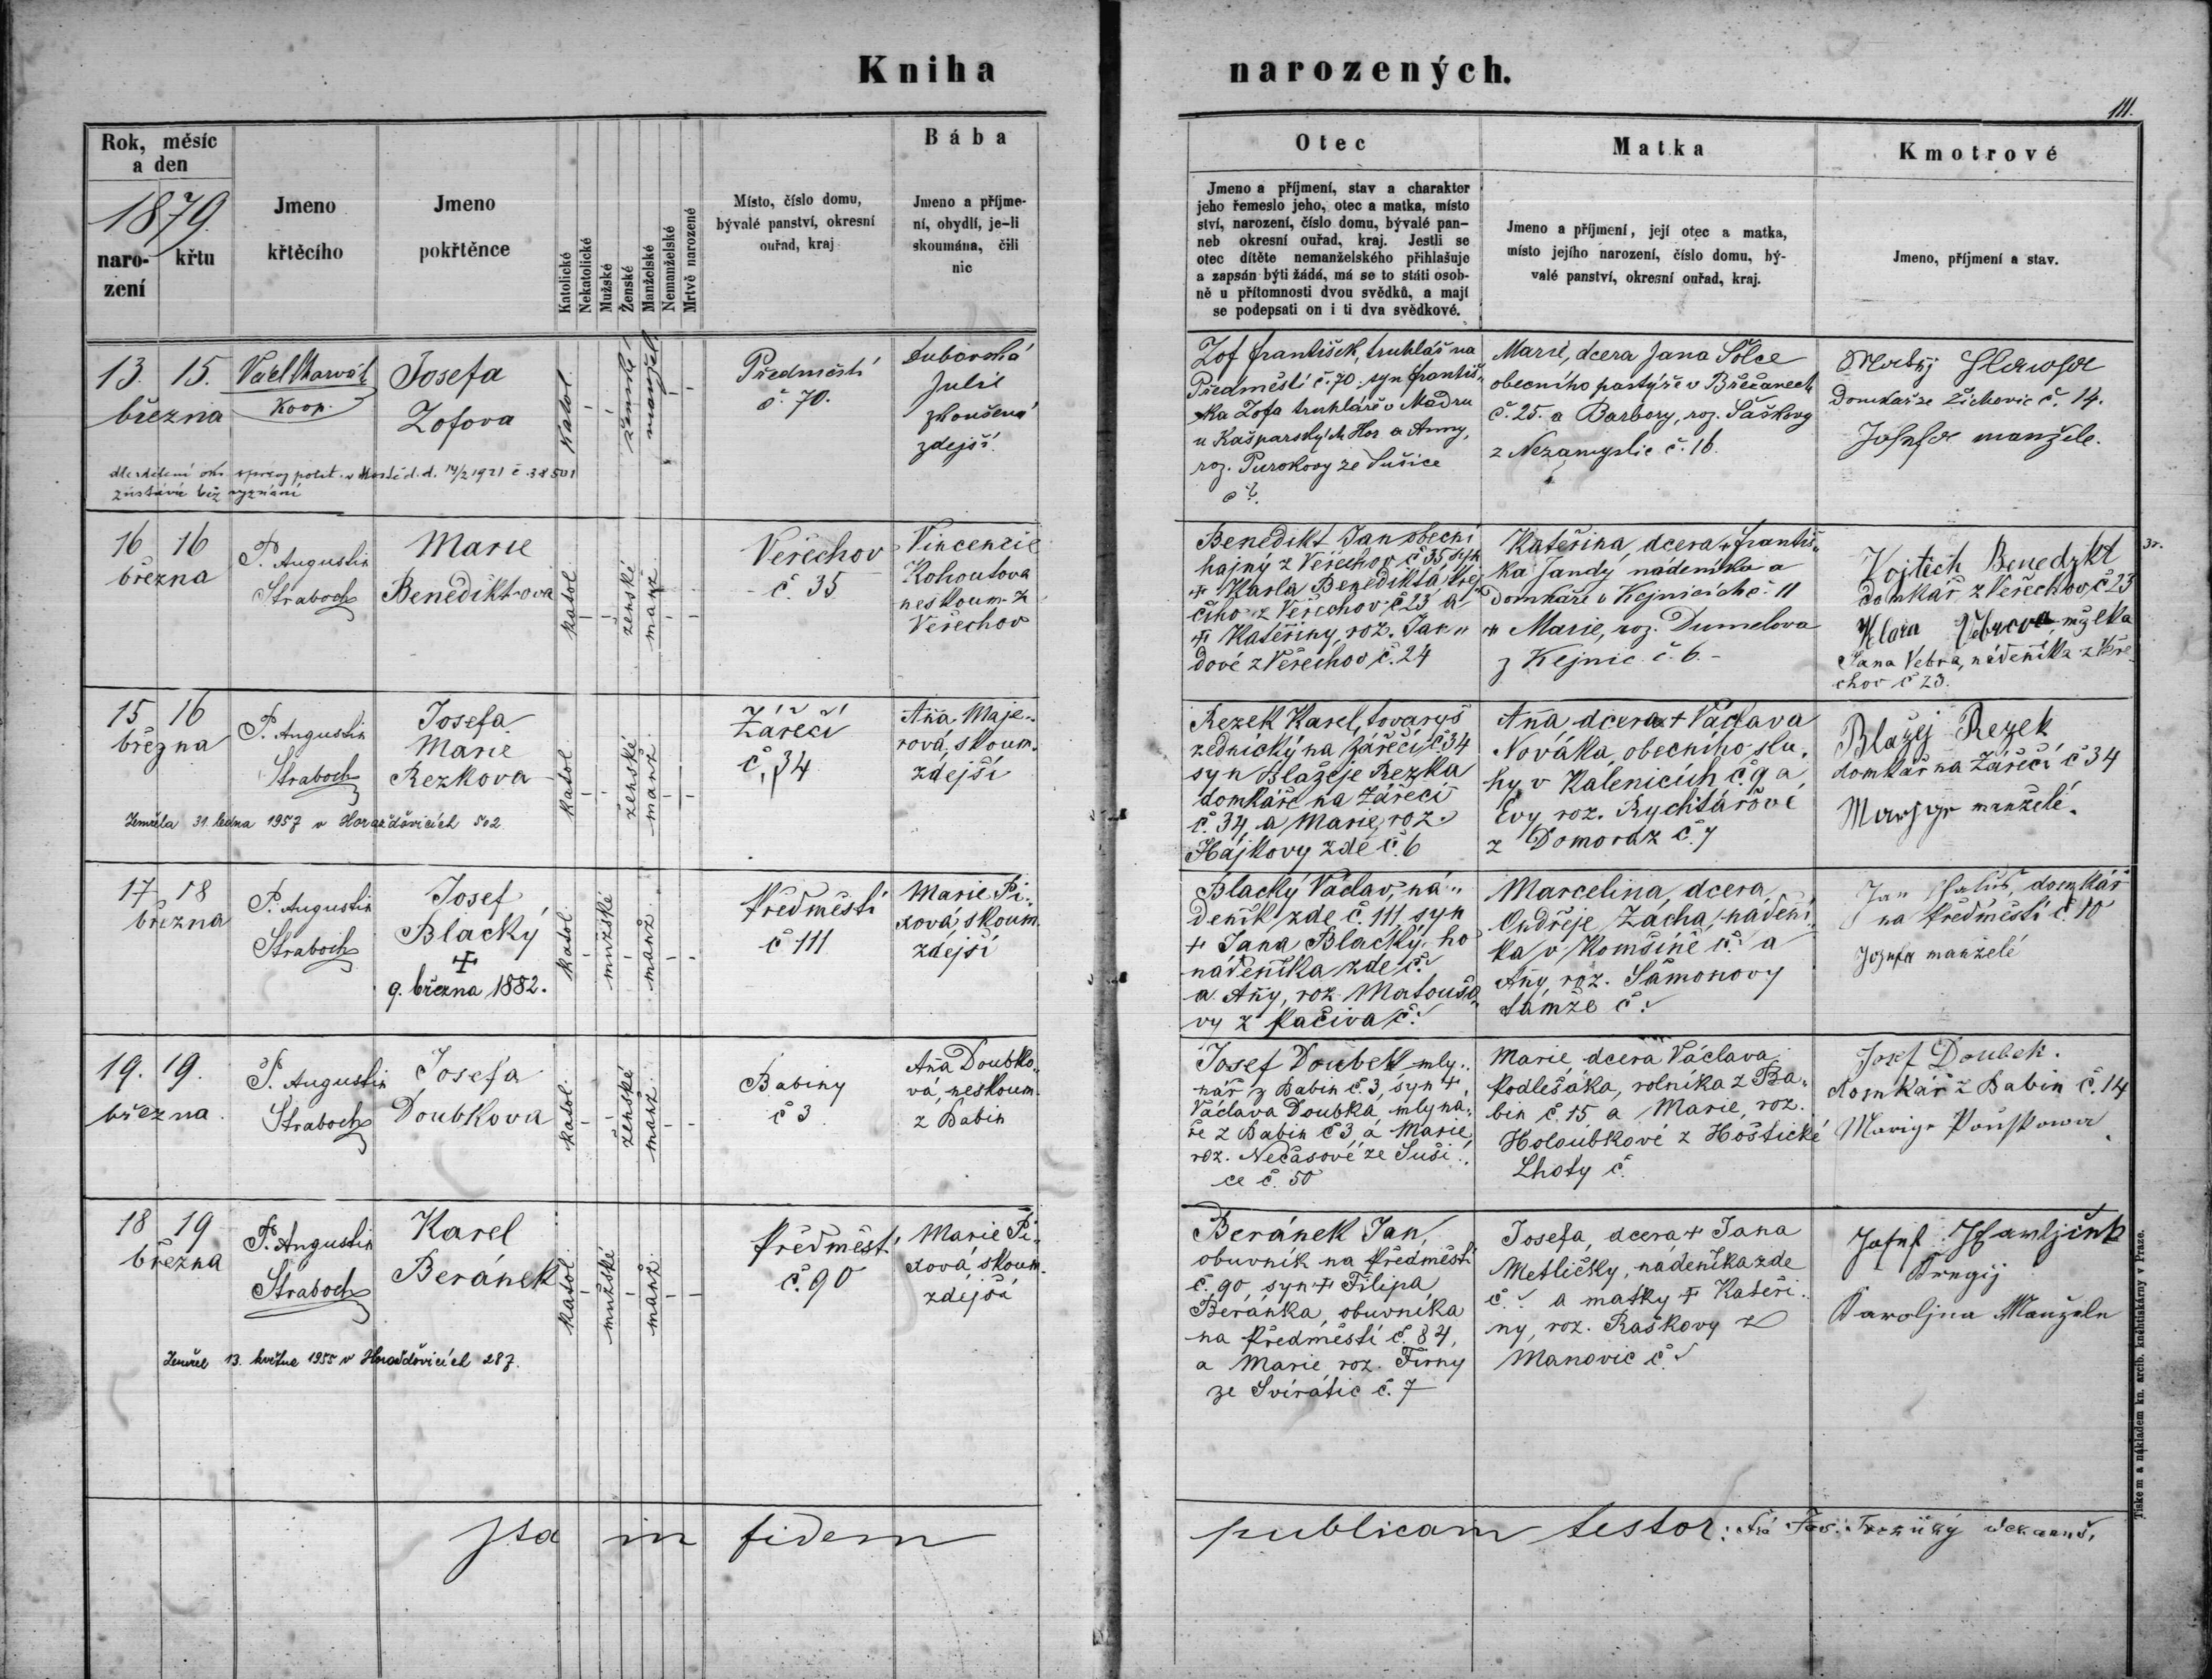 Kniha narozených.
111.
Rok, měsíc
a den
1879.
naro-
zení
křtu
Jmeno
křtěcího
Jmeno
pokřtěnce
Katolické
Nekatolické
Mužské
Ženské
Manželské
Nemanželské
Mrtvě narozené
Místo, číslo domu,
bývalé panství, okresní
ouřad, kraj
Bába
Jmeno a příjme-
ní, obydlí, je-li
skoumána, čili
nic
Otec
Jmeno a příjmení, stav a charakter
jeho řemeslo jeho, otec a matka, místo
ství, narození, číslo domu, bývalé pan-
neb okresní ouřad, kraj. Jestli se
otec dítěte nemanželského přihlašuje
a zapsán býti žádá, má se to státi osob-
ně u přítomnosti dvou svědků, a mají
se podepsati on i ti dva svědkové.
Matka
Jmeno a příjmení, její otec a matka,
místo jejího narození, číslo domu, bý-
valé panství, okresní ouřad, kraj.
Kmotrové
Jmeno, příjmení a stav.
13. 15.
března
Koop.
Josefa
Zofova
katol.
ženské
manžel.
Předměstí
č. 70.
Julie
zkoušená
zdejší
Zof František, truhlář na
Předměstí č. 70. syn Františ-
ka Zofa truhláře v
u Kašparských Hor a Anny,
roz. ze Sušice
č ?.
Marie, dcera Jana Šolce
obecního pastýře v Břežanech
č. 25. a Barbory, roz. Šaškovy
z Nezamyslic č. 16.
Matěj
Domkář ze Žichovic č. 14.
Josefa manželé.
zůstává bez vyznání
16 16
března
P. Augustin
Straboch
Marie
Benedikt-ova
katol.
ženské
manž.
Veřechov
č. 35
Vincencie
Kohoutova
neskoum. z
Veřechov
Benedikt Jan obecní
hajný z Veřechov č 35 syn
+ Karla Benedikta krej-
čího z Veřechov č 23 a
+ Kateřiny, roz. Jan-
dové z Veřechov č. 24
Kateřina, dcera + Františ-
ka Jandy nádeníka a
domkáře v Kejnicích č. 11
+ Marie, roz. Dumelova
z Kejnic č. 6. -
Vojtěch Benedykt
domkář z Veřechov č 23
Klara
Jana Vebra, nádeníka z Veře-
chov č 23.
15 16
března
P. Augustin
Straboch
Josefa
Marie
Rezkova
katol.
ženské
manž.
Zářečí
č. 34
Anna Maje-
rová, skoum.
zdejší
Zemřela 31. ledna 1957 v Horažďovicích 502
Rezek Karel, tovaryš
zednický na Zářečí č. 34
syn Blažeje Rezka
domkáře na Zářečí
č. 34 a Marie, roz.
Hájkovy zde č. 6
Anna, dcera + Václava
Nováka, obecního slu-
hy v Kalenicích č. 9 a
Evy roz. Rychtářové
z Domoraz č. 7
Blažej Rezek
domkář na Zářečí č 34
manželé.
17 18
března
P. Augustin
Straboch
Josef
Blacký
+
9. března 1882.
katol.
mužské
manž.
Předměstí
č 111
Marie Pi-
xová, skoum.
zdejší
Blacký Václav, ná-
deník zde č. 111, syn
+ Jana Blacký-ho
nádeníka zde č.
a Anny, roz. Matoušo-
vy z Pačiva č.
Marcelina, dcera
Ondřeje Zacha, nádení-
ka v Komšíně č. a
Anny, roz. Šamonovy
tamže č.
Jan domkář
na Předměstí č. 10
Josefa manželé
19. 19.
března
P. Augustin
Straboch
Josefa
Doubkova
katol.
ženské
manž.
Babiny
č 3
Anna Doubko-
vá, neskoum.
z Babin
Josef Doubek mly-
nář z Babin č 3, syn +
Václava Doubka mlyná-
ře z Babin č 3 a Marie,
roz. Nečasové ze Suši-
ce č. 50
Marie, dcera Václava
Podlešáka, rolníka z Ba-
bin č. 15 a Marie, roz.
Holoubkové z Hoštické
Lhoty č.
Josef Doubek.
domkář z Babin č. 14
18 19
března
P. Augustin
Straboch
Karel
Beránek
katol.
mužské
manž.
Předměstí
č. 90
Marie Pi-
xová, skoum.
zdejší
Zemřel 13. května 1955 v Horažďovicích 287.
Beránek Jan,
obuvník na Předměstí
č. 90, syn + Filipa
Beránka, obuvníka
na Předměstí č. 84,
a Marie roz. Firny
ze Svírátic č. 7
Josefa, dcera + Jana
Metličky, nádeníka zde
č. a matky + Kateři-
ny, roz. Raškovy z
Manovic č.
Josef
Karoljna Manžele
Ita in fidem publicam testor:
Tiskem a nákladem kn. arcib. kněhtiskárny v Praze.